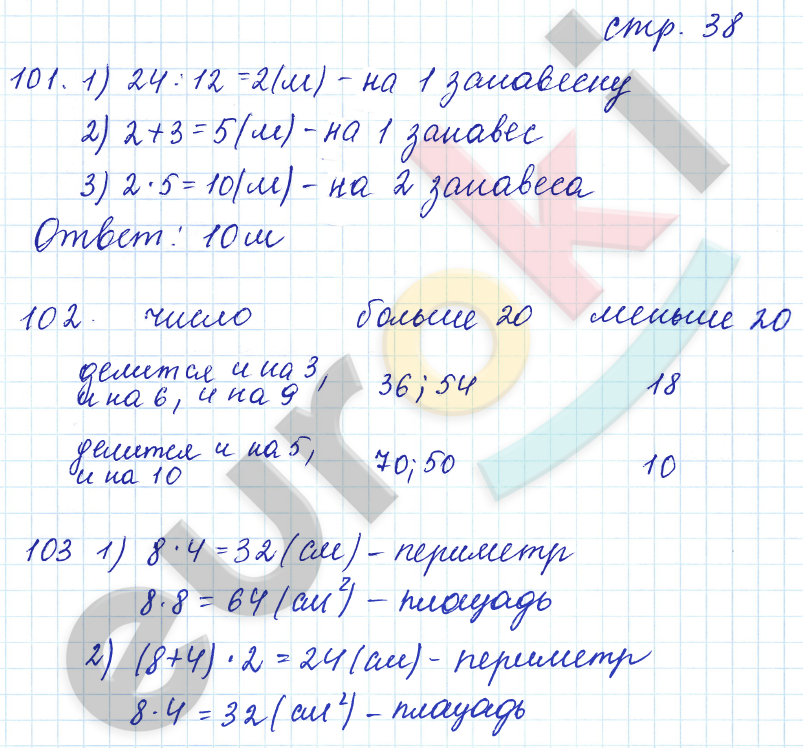 стр. 38
101. 1) 24 : 12 = 2(м) - на 1 занавеску
2) 2 + 3 = 5(м) - на 1 занавес
3) 2 · 5 = 10(м) - на 2 занавеса
Ответ: 10 м
102. число больше 20 меньше 20
делится и на 3, 36; 54 18
и на 6, и на 9
делится и на 5, 70; 50 10
и на 10
103 1) 8 · 4 = 32 (см) - периметр
8 · 8 = 64 (см²) - площадь
2) (8+4) · 2 = 24 (см) - периметр
8 · 4 = 32 (см²) - площадь
euroki